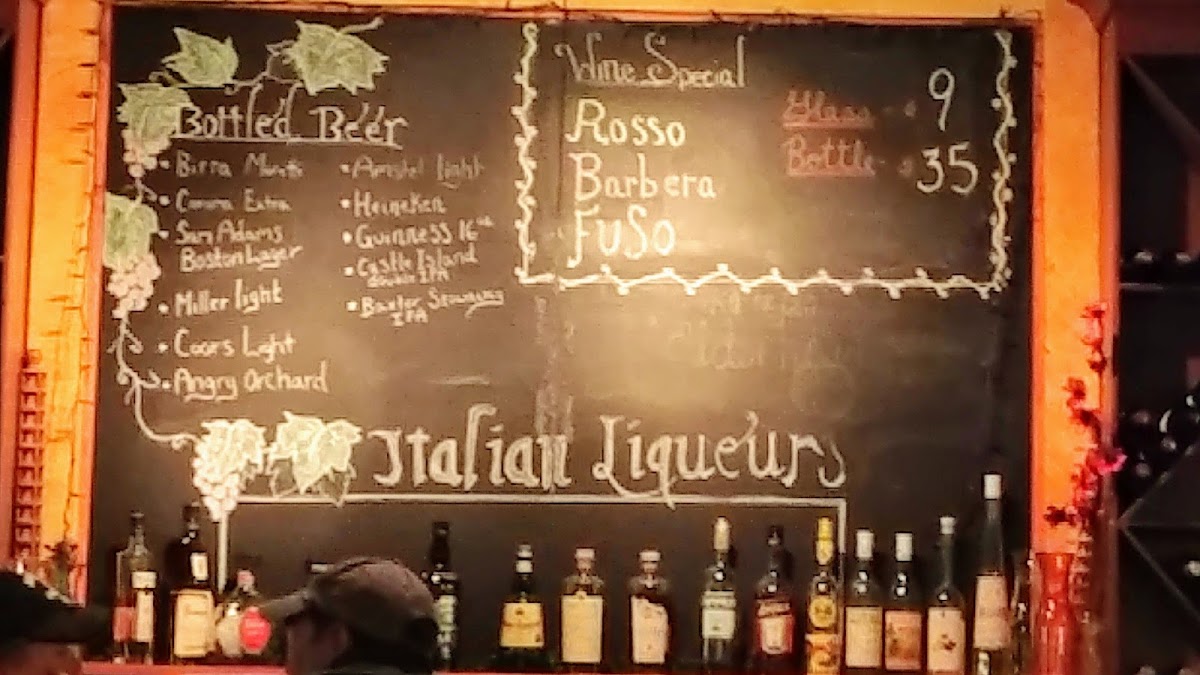 Bottled Beer
• Birra Moretti
• Corona Extra
• Sam Adams
Boston Lager
• Miller light
• Coors Light
• Angry Orchard
• Amstel light
• Heineken
• Guinness 16oz
• Castle Island
IPA
• Baxter Stowaway
IPA
Wine Special
Rosso
Barbera
FuSo
Glass - 9
Bottle - 35
Italian Liqueurs